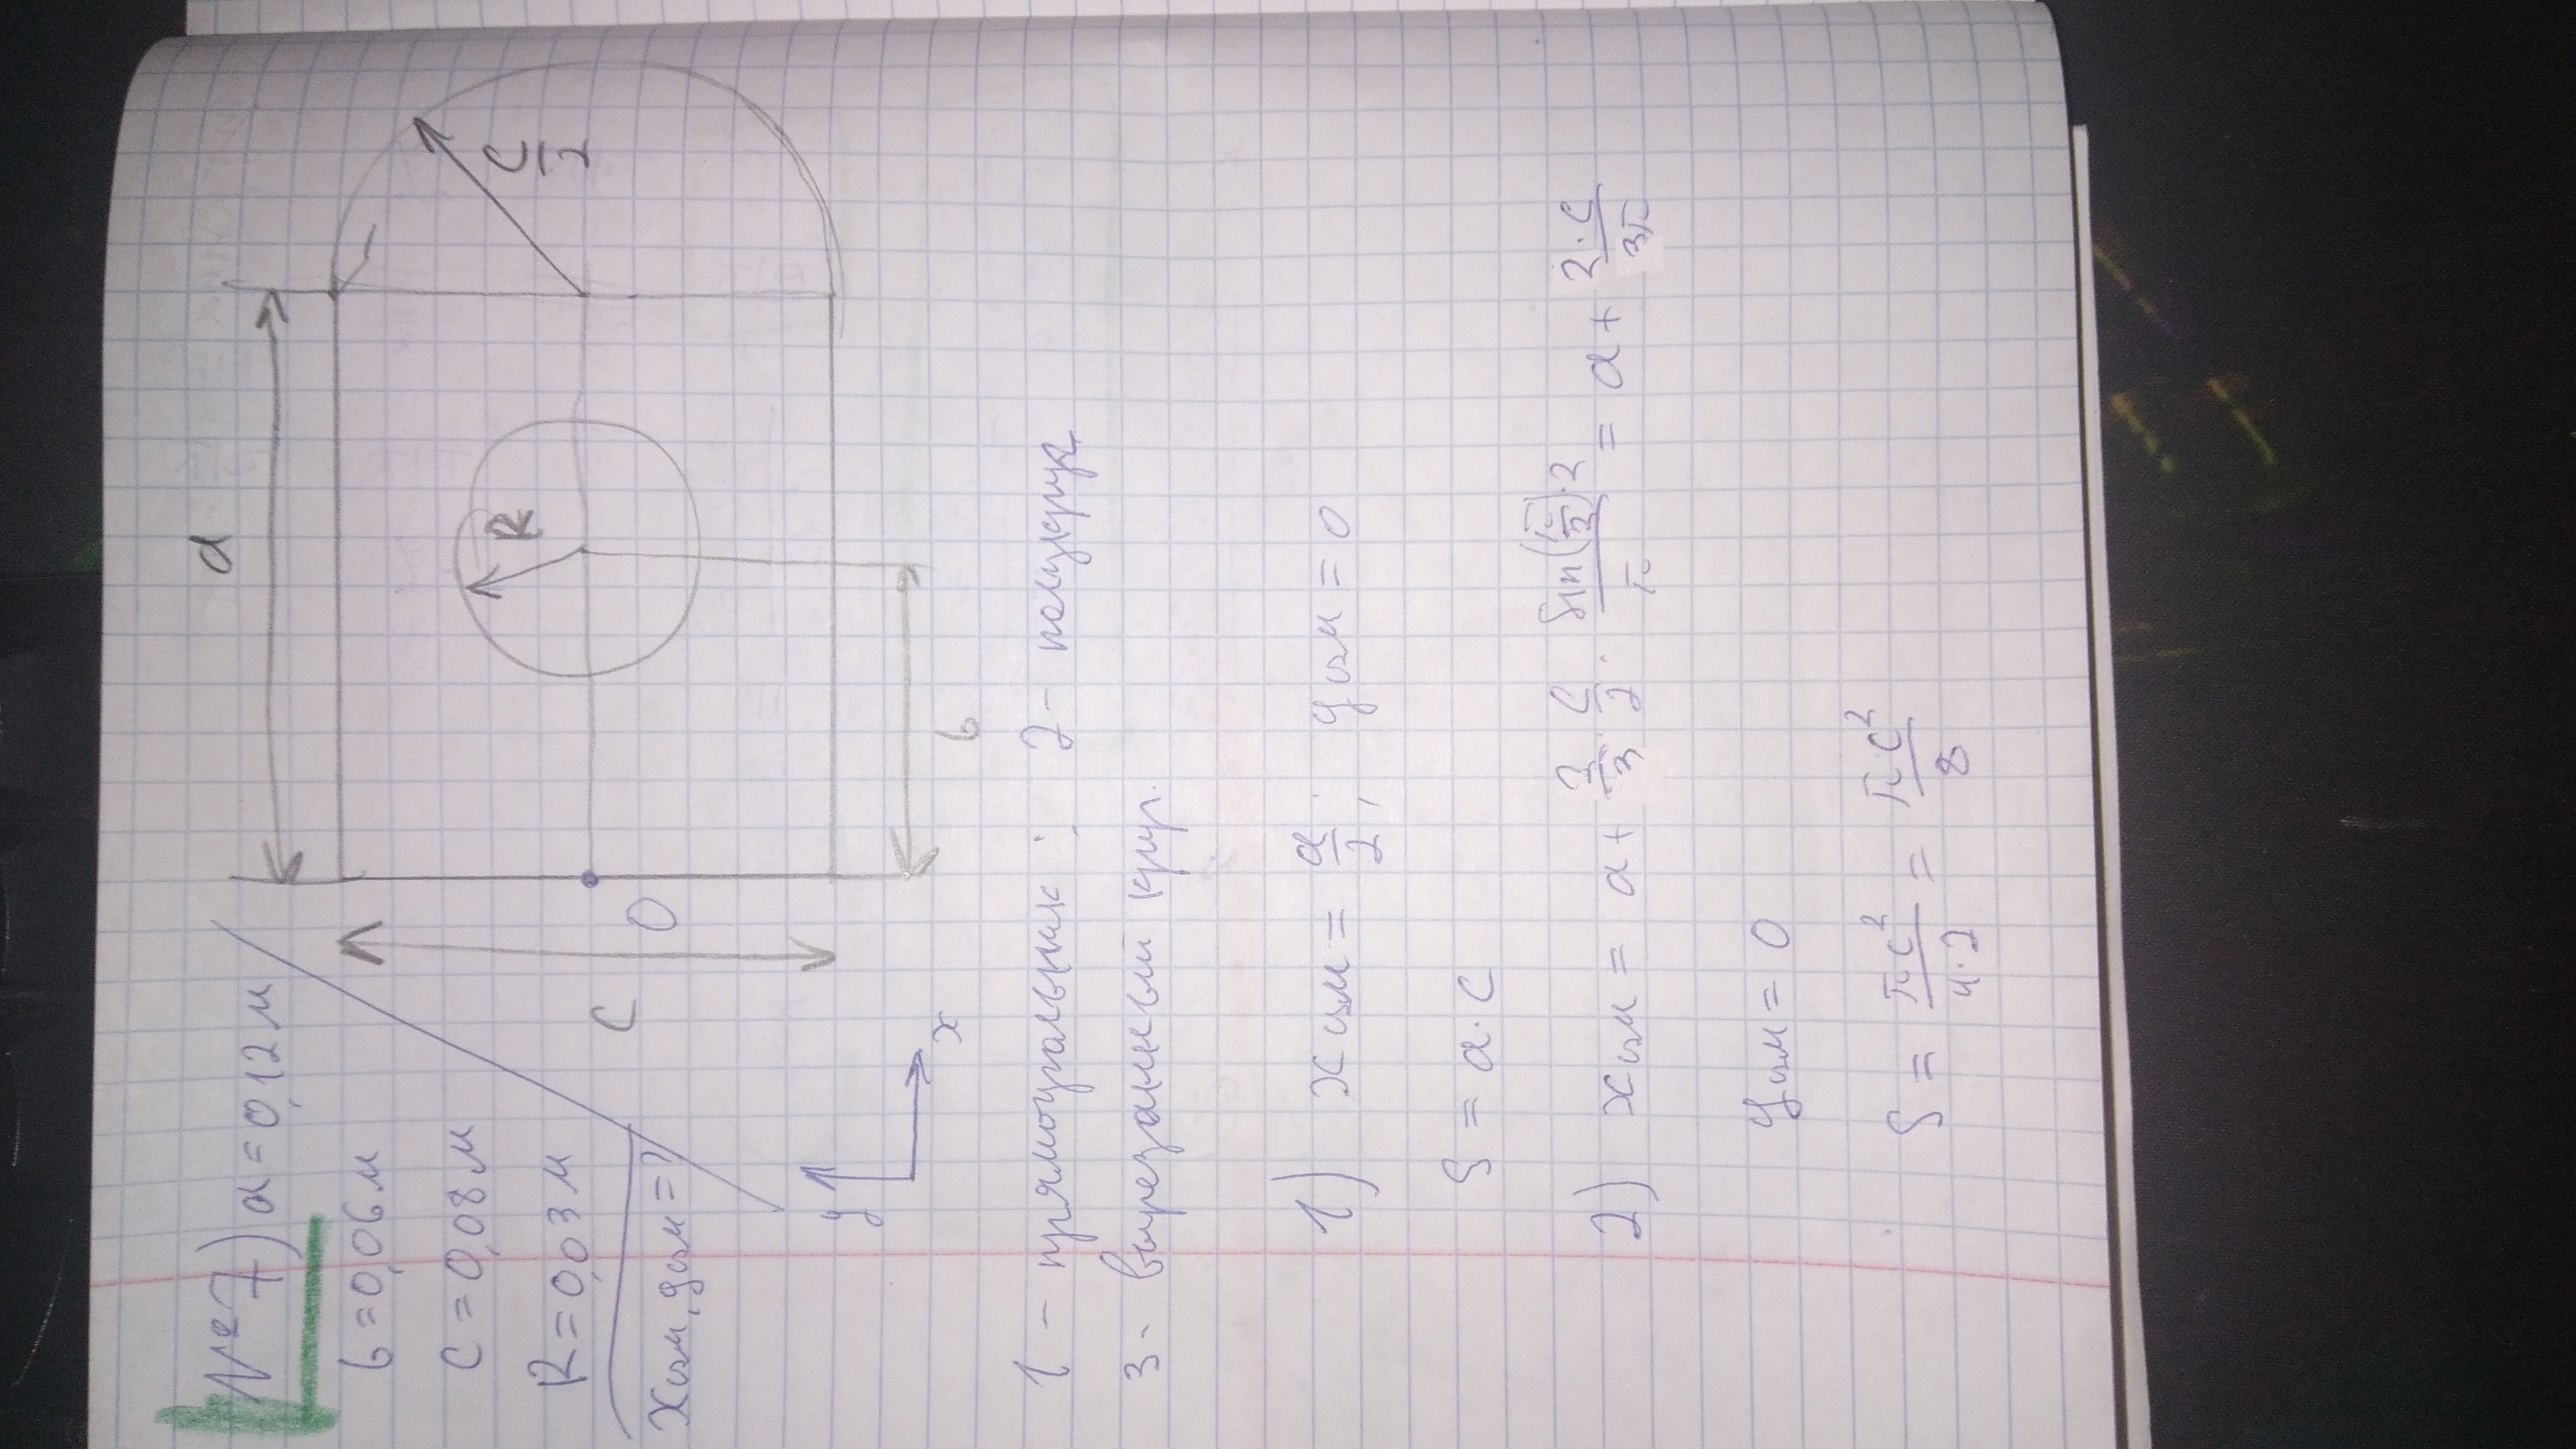 №7) a = 0,12 м
b = 0,06 м
c = 0,08 м
R = 0,03 м
xцм, yцм = ?
a
c
O
R
c/2
b
y
x
1 - прямоугольник ; 2 - полукруг
3 - вырезанный круг.
1) xцм = a/2 ; yцм = 0
S = a · c
2) xцм = a + 2/3 · c/2 · sin(π/2)·2/π = a + 2·c/3π
yцм = 0
S = πc²/4·2 = πc²/8